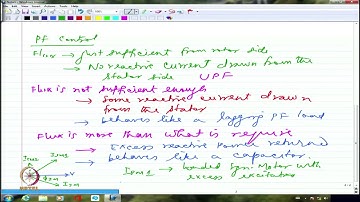 PF Control
Flux → Just sufficient from rotor side
→ No reactive current drawn from the
stator side UPF
Flux is not sufficient enough
→ Some reactive current drawn
from the stator
→ behaves like a lagging PF load
Flux is more than what is require
→ Excess reactive power returned
→ behaves like a capacitor.
→ loaded Syn. Motor with
excess excitation
V